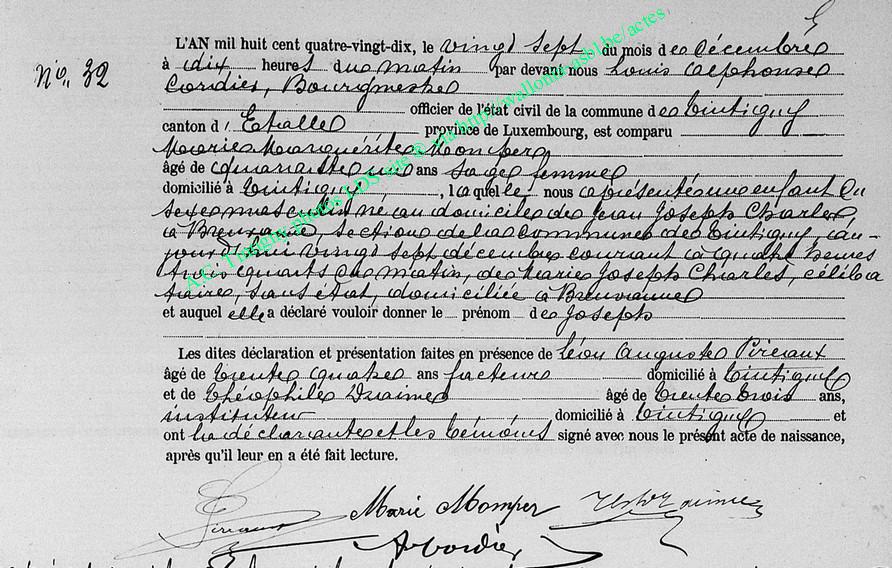 L'AN mil huit cent quatre-vingt-dix, le vingt sept du mois de décembre
No. 32
à dix heures du matin par devant nous Louis Alphonse
Cordier, Bourgmestre
officier de l'état civil de la commune de Tintigny
canton d'Etalle province de Luxembourg, est comparu
Marie Marguérite Momper
âgé de quarante un ans sage femme
domicilié à Tintigny, laquelle nous a présenté un enfant du
sexe masculin né au domicile de Jean Joseph Charles,
à Breuvanne, section de la commune de Tintigny, au-
jourd'hui vingt sept décembre courant à quatre heures
trois quarts du matin, de Marie Joseph Charles, céliba
taire, sans état, domiciliée à Breuvanne
et auquel elle a déclaré vouloir donner le prénom de Joseph
Les dites déclaration et présentation faites en présence de Léon Auguste Piraux
âgé de trente quatre ans facteur domicilié à Tintigny
et de Théophile âgé de trente trois ans,
instituteur domicilié à Tintigny et
ont la déclarante et les témoins signé avec nous le présent acte de naissance,
après qu'il leur en a été fait lecture.
Marie Momper
A Cordier
A.C. Tintigny photos LDS site © via http://wallonia-asbl.be/actes